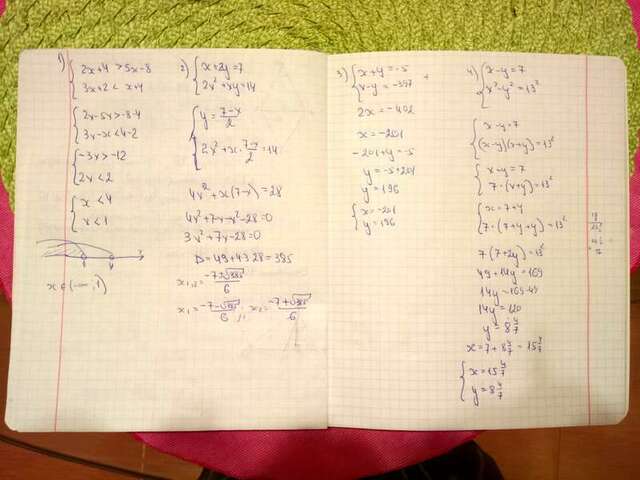 1) { 2x+4 > 5x-8
3x+2 < x+4
{ 2x-5x > -8-4
3x-x < 4-2
{ -3x > -12
2x < 2
{ x < 4
x < 1
1 4 x
x ∈ (-∞; 1)
2) { x+2y = 7
2x²+xy = 14
{ y = (7-x)/2
2x²+x·(7-x)/2 = 14
4x²+x(7-x) = 28
4x²+7x-x²-28 = 0
3x²+7x-28 = 0
D = 49+4·3·28 = 385
x₁,₂ = (-7±√385)/6
x₁ = (-7-√385)/6 ; x₂ = (-7+√385)/6
3) { x+y = -5
x-y = -397
2x = -402
x = -201
-201+y = -5
y = -5+201
y = 196
{ x = -201
y = 196
4) { x-y = 7
x²-y² = 13²
{ x-y = 7
(x-y)(x+y) = 13²
{ x-y = 7
7·(x+y) = 13²
{ x = 7+y
7·(7+y+y) = 13²
7(7+2y) = 13²
49+14y = 169
14y = 169-49
14y = 120
y = 8 4/7
x = 7+8 4/7 = 15 4/7
{ x = 15 4/7
y = 8 4/7